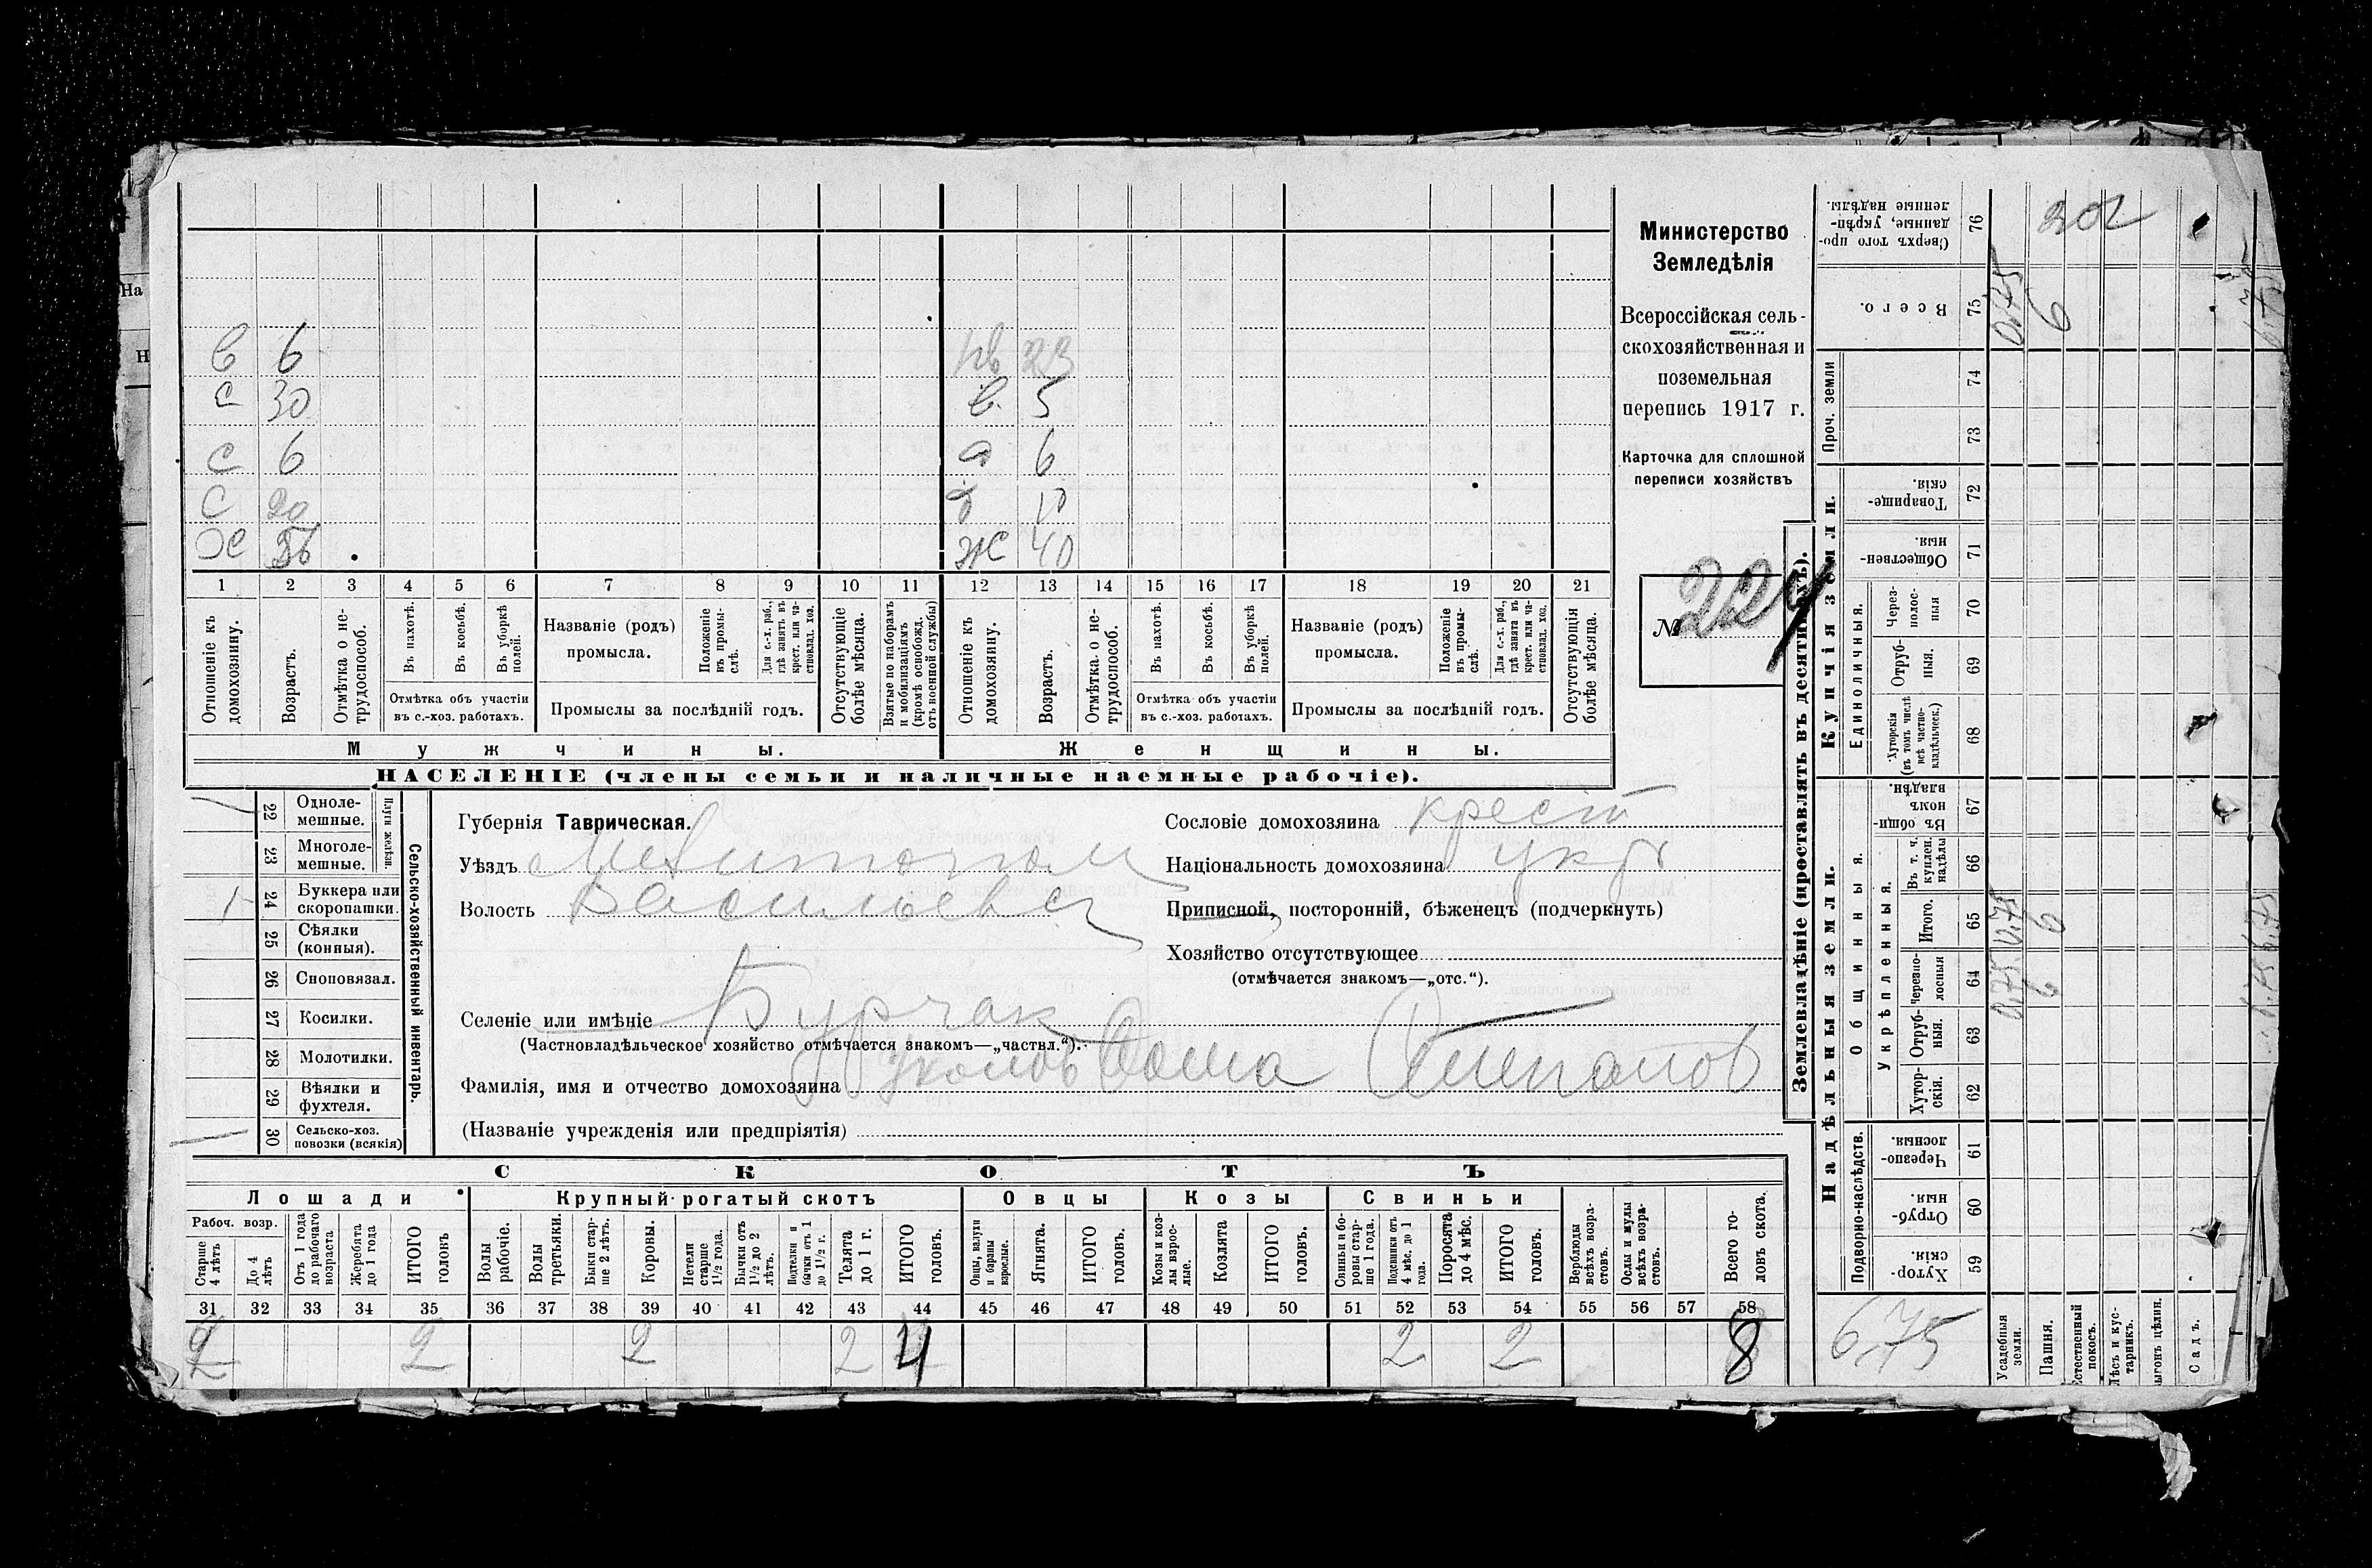 На
Н
Министерство
Земледѣлія
Всероссійская сель-
скохозяйственная и
поземельная
перепись 1917 г.
Карточка для сплошной
переписи хозяйствъ
№ 224
в 6
с 30
с 6
с 20
Х
нв 23
в. 5
д 6
10
Ж 40
1 2 3 4 5 6 7 8 9 10 11 12 13 14 15 16 17 18 19 20 21
Отношеніе къ домохозяину.
Возрастъ.
Отмѣтка о не-трудоспособ.
Въ пахотѣ.
Въ косьбѣ.
Въ уборкѣ полей.
Отмѣтка объ участіи
въ с.-хоз. работахъ.
Названіе (родъ)
промысла.
Положеніе въ промы-слѣ.
Для с.-х. раб., гдѣ занятъ въ крест. или ча-стновлад. хоз.
Промыслы за послѣдній годъ.
Отсутствующіе болѣе мѣсяца.
Взятые по наборамъ и мобилизаціямъ (кромѣ освобожд. отъ военной службы)
Отношеніе къ домохозяину.
Возрастъ.
Отмѣтка о не-трудоспособ.
Въ пахотѣ.
Въ косьбѣ.
Въ уборкѣ полей.
Отмѣтка объ участіи
въ с.-хоз. работахъ.
Названіе (родъ)
промысла.
Положеніе въ промы-слѣ.
Для с.-х. раб., гдѣ занята въ крест. или ча-стновлад. хоз.
Промыслы за послѣдній годъ.
Отсутствующія болѣе мѣсяца.
Мужчины.
Женщины.
НАСЕЛЕНІЕ (члены семьи и наличные наемные рабочіе).
Сельско-хозяйственный инвентарь.
Плуги желѣзн.
22 Одноле-мешные.
23 Многоле-мешные.
1 24 Буккера или скоропашки.
25 Сѣялки (конныя).
26 Сноповязал.
27 Косилки.
28 Молотилки.
29 Вѣялки и фухтеля.
30 Сельско-хоз. повозки (всякія)
Губернія Таврическая.
Уѣздъ Мелитопол
Волость Васильевс
Селеніе или имѣніе Бурчак
(Частновладѣльческое хозяйство отмѣчается знакомъ—„частвл.“).
Фамилія, имя и отчество домохозяина Фома Степанов
(Названіе учрежденія или предпріятія)
Сословіе домохозяина крест
Національность домохозяина укр
Приписной, посторонній, бѣженецъ (подчеркнуть)
Хозяйство отсутствующее
(отмѣчается знакомъ—„отс.“).
СКОТЪ
Лошади
Крупный рогатый скотъ
Овцы
Козы
Свиньи
Рабоч. возр.
Старше 4 лѣтъ
До 4 лѣтъ
Отъ 1 года до рабочаго возраста
Жеребята до 1 года
ИТОГО головъ
Волы рабочіе.
Волы третьяки.
Быки стар-ше 2 лѣтъ.
Коровы.
Нетели старше 1 1/2 года.
Бычки отъ 1 1/2 до 2 лѣтъ.
Подтелки и бычки отъ 1 до 1 1/2 г.
Телята до 1 г.
ИТОГО головъ.
Овцы, валухи и бараны взрослые.
Ягнята.
ИТОГО головъ.
Козы и коз-лы взрос-лые.
Козлята
ИТОГО головъ.
Свиньи и бо-ровы стар-ше 1 года.
Подсвинки отъ 4 мѣс. до 1 года.
Поросята до 4 мѣс.
ИТОГО головъ.
Верблюды всѣхъ возра-стовъ.
Ослы и мулы всѣхъ возра-стовъ.
Всего го-ловъ скота.
31 32 33 34 35 36 37 38 39 40 41 42 43 44 45 46 47 48 49 50 51 52 53 54 55 56 57 58
2 2 2 2 4 2 2 8
Землевладѣніе (проставлять въ десятинахъ).
Надѣльныя земли.
Купчія земли.
Проч. земли
Подворно-наслѣдств.
Общинныя.
Укрѣпленныя.
Единоличныя.
Хутор-скія. 59
Отруб-ныя. 60
Черезпо-лосныя. 61
Хутор-скія. 62
Отруб-ныя. 63
Черезпо-лосныя 64
Итого. 65
Въ т. ч. куплен. надѣлы 66
Въ общин-номъ владѣн. 67
Хуторскія (въ томъ числѣ всѣ частно-владѣльческ.) 68
Отруб-ныя. 69
Через-полос-ныя 70
Обществен-ныя 71
Товарище-скія. 72
73
74
Всего. 75
Сверхъ того про-данные, укрѣп-ленные надѣлы. 76
6,75
Усадебныя земли.
Пашня.
Естественный покосъ.
Лѣсъ и кус-тарникъ.
Выгонъ цѣлин.
Садъ.
0,75 0,75
6 6
6
6,75 6,75